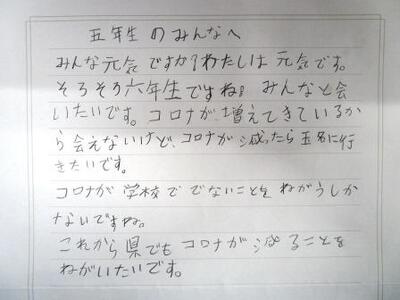 五年生のみんなへ
みんな元気ですか?わたしは元気です。
そろそろ六年生ですね。みんなと会
いたいです。コロナが増えてきているか
ら会えないけど、コロナが減ったら玉名に行
きたいです。
コロナが学校ででないことをねがうしか
ないですね。
これから県でもコロナが減ることを
ねがいたいです。